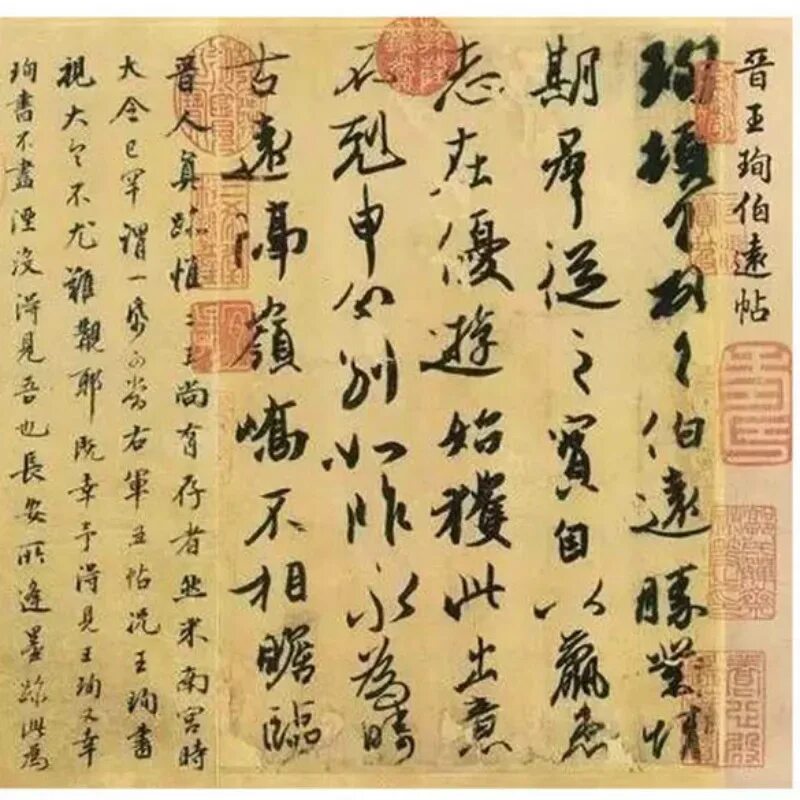 晉王珣伯遠帖
珣頓首頓首伯遠勝業情
期群從之寶自以羸患
志在優遊始獲此出意
不剋申分別如昨永為疇
古遠隔嶺嶠不相瞻臨
晉人真跡惟二王尚有存者然米南宮時
大令已罕謂一帋可當右軍五帖況王珣書
視大令不尤難覯耶既幸予得見王珣又幸
珣書不盡湮沒得見吾也長安所逢墨跡此為